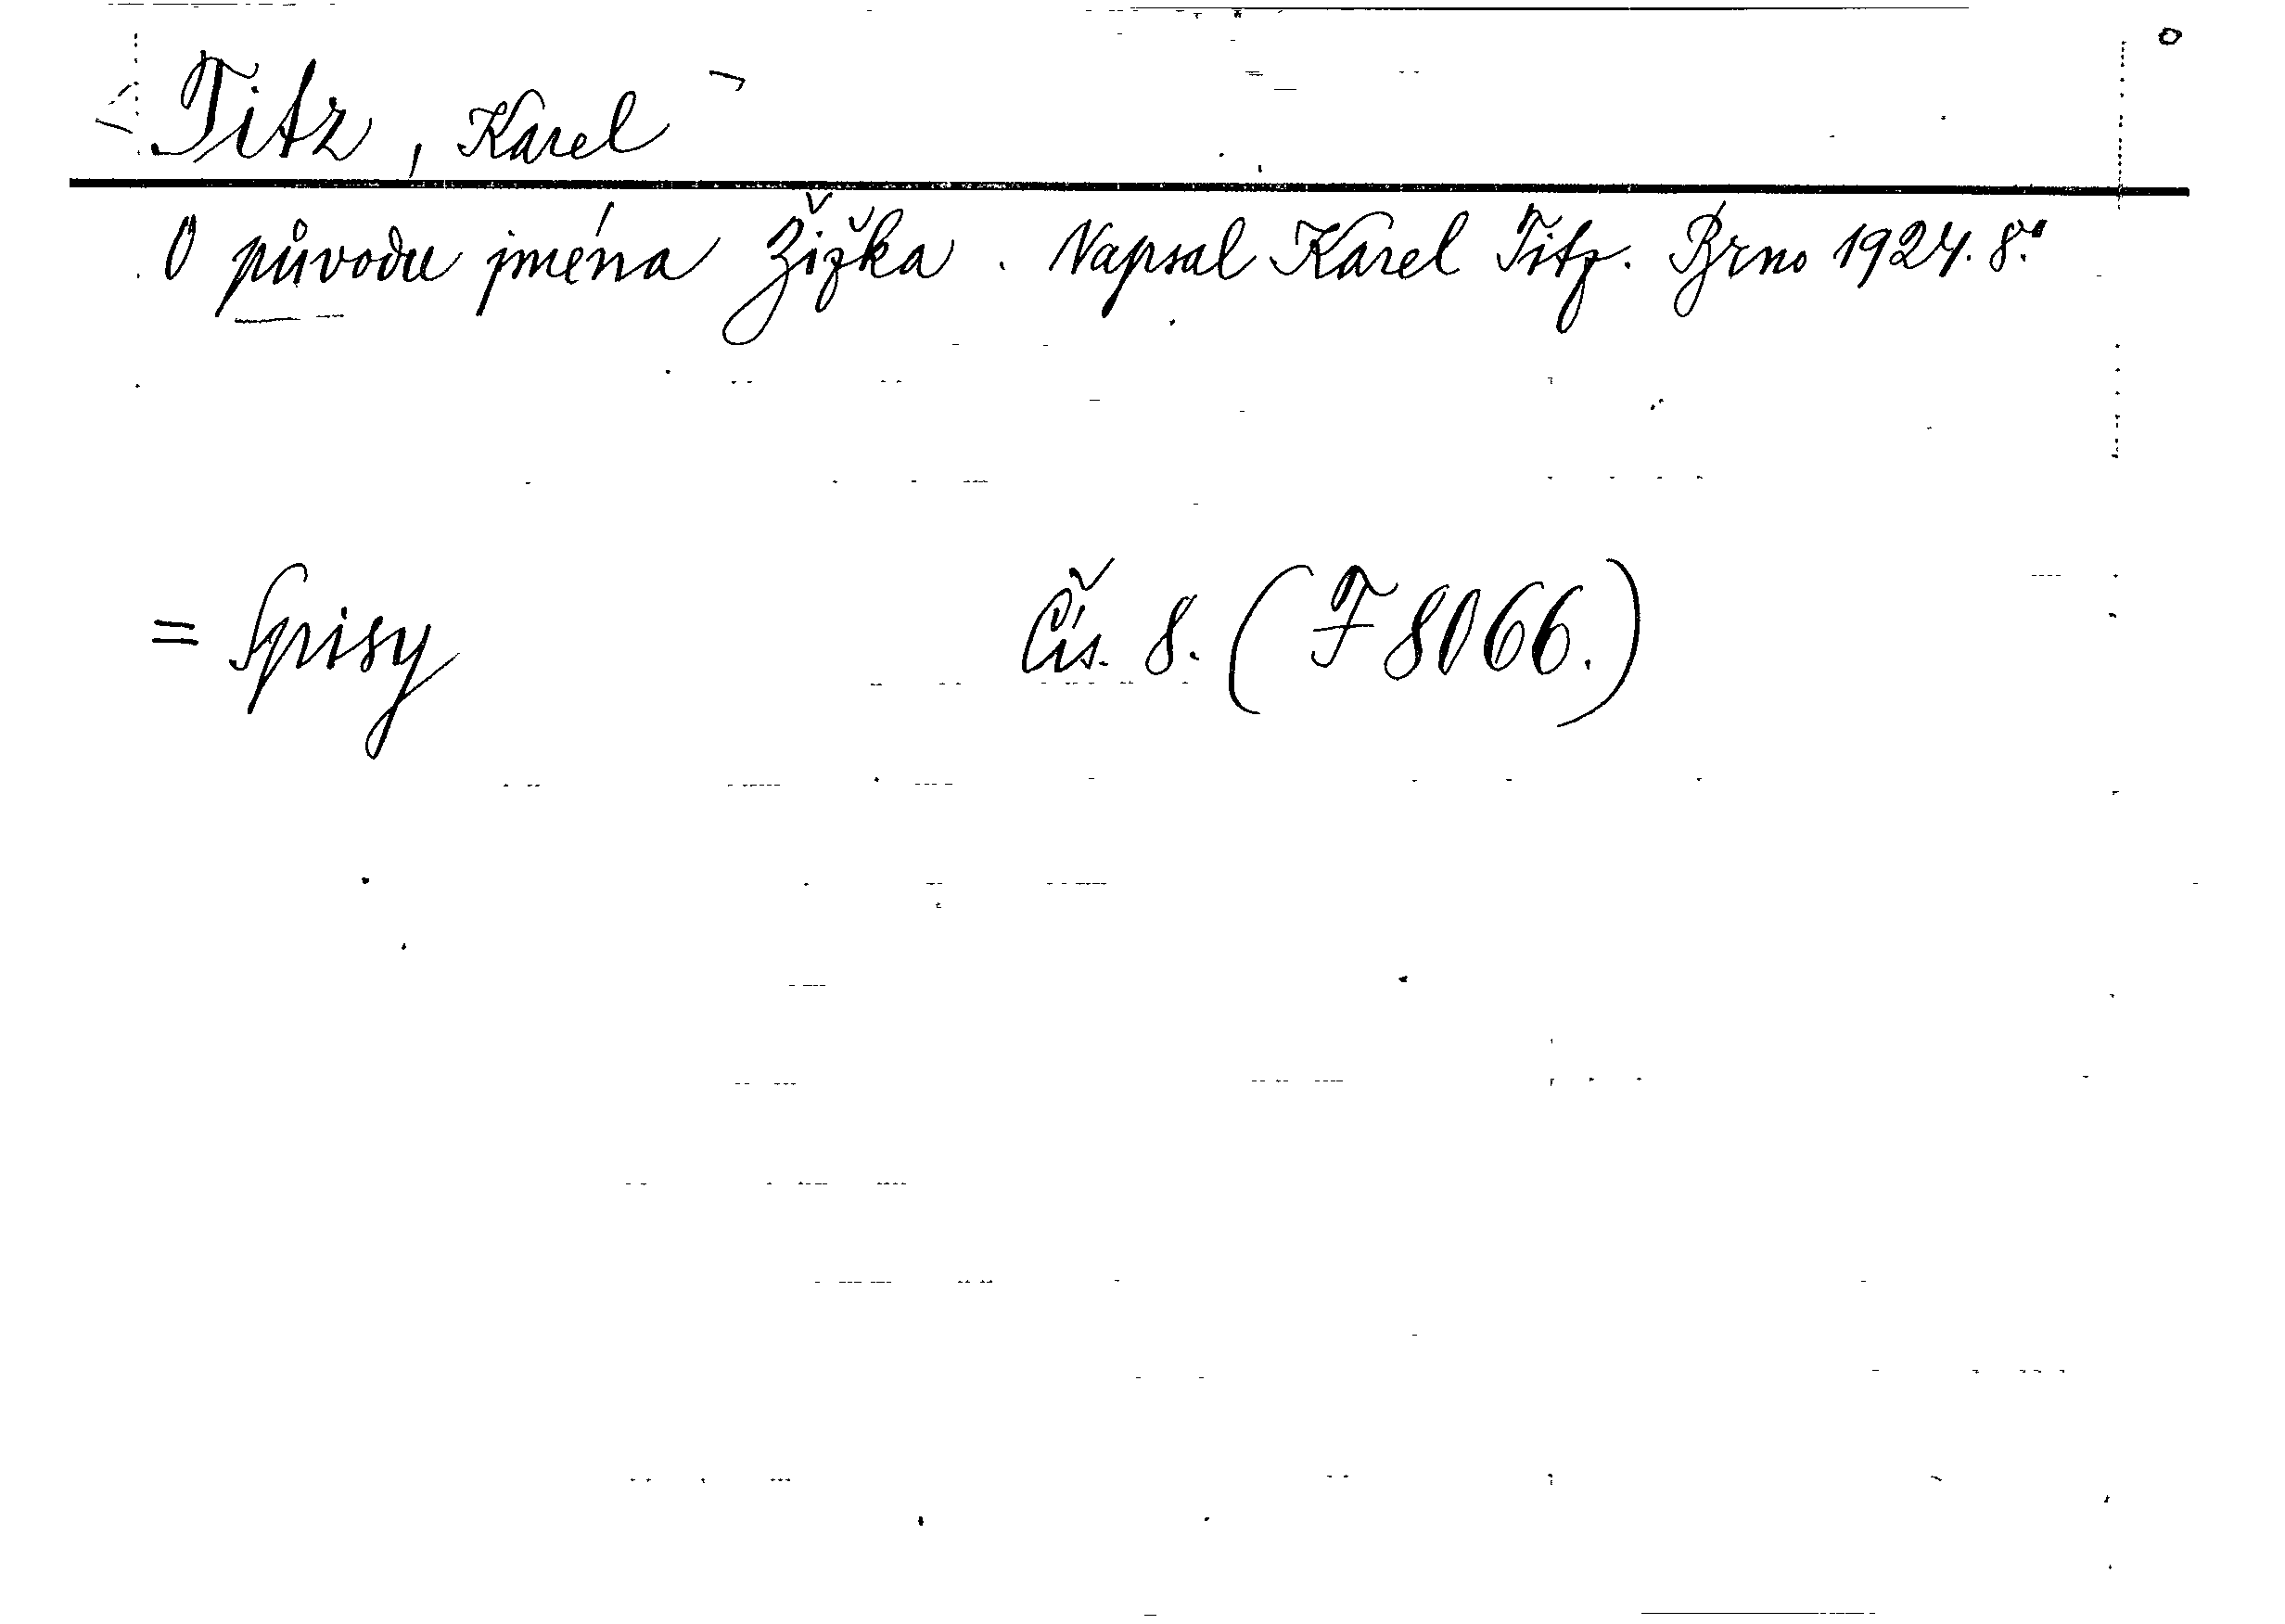 Titz, Karel
O původu jména Žižka. Napsal Karel Titz. Brno 1924. 8.°
= Spisy Čís. 8. (F 8066.)